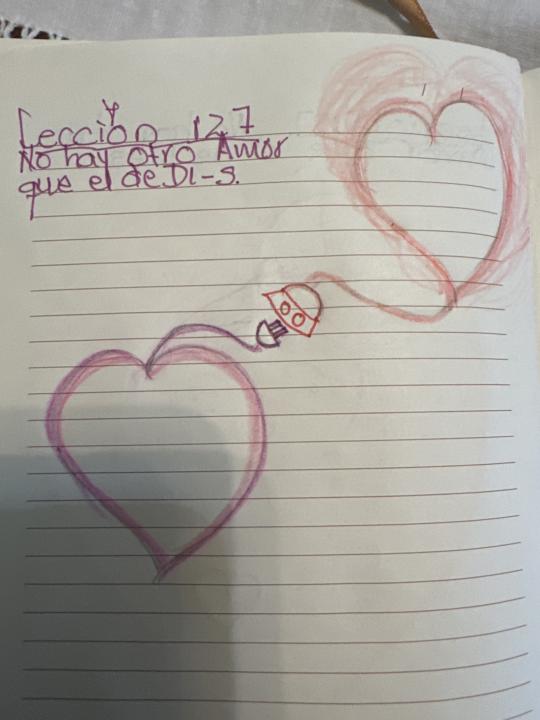 Lección 127
No hay Otro Amor
que el de Di-s.